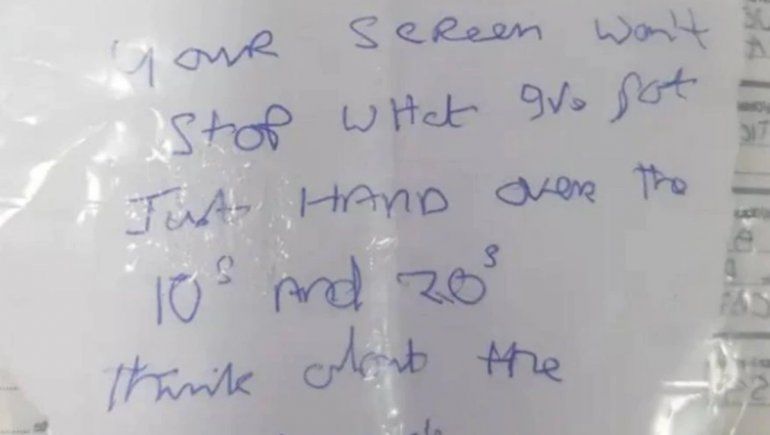 Your SCREEN Won't
Stop WHat I've got
Just HAND over the
10s And 20s
think about the